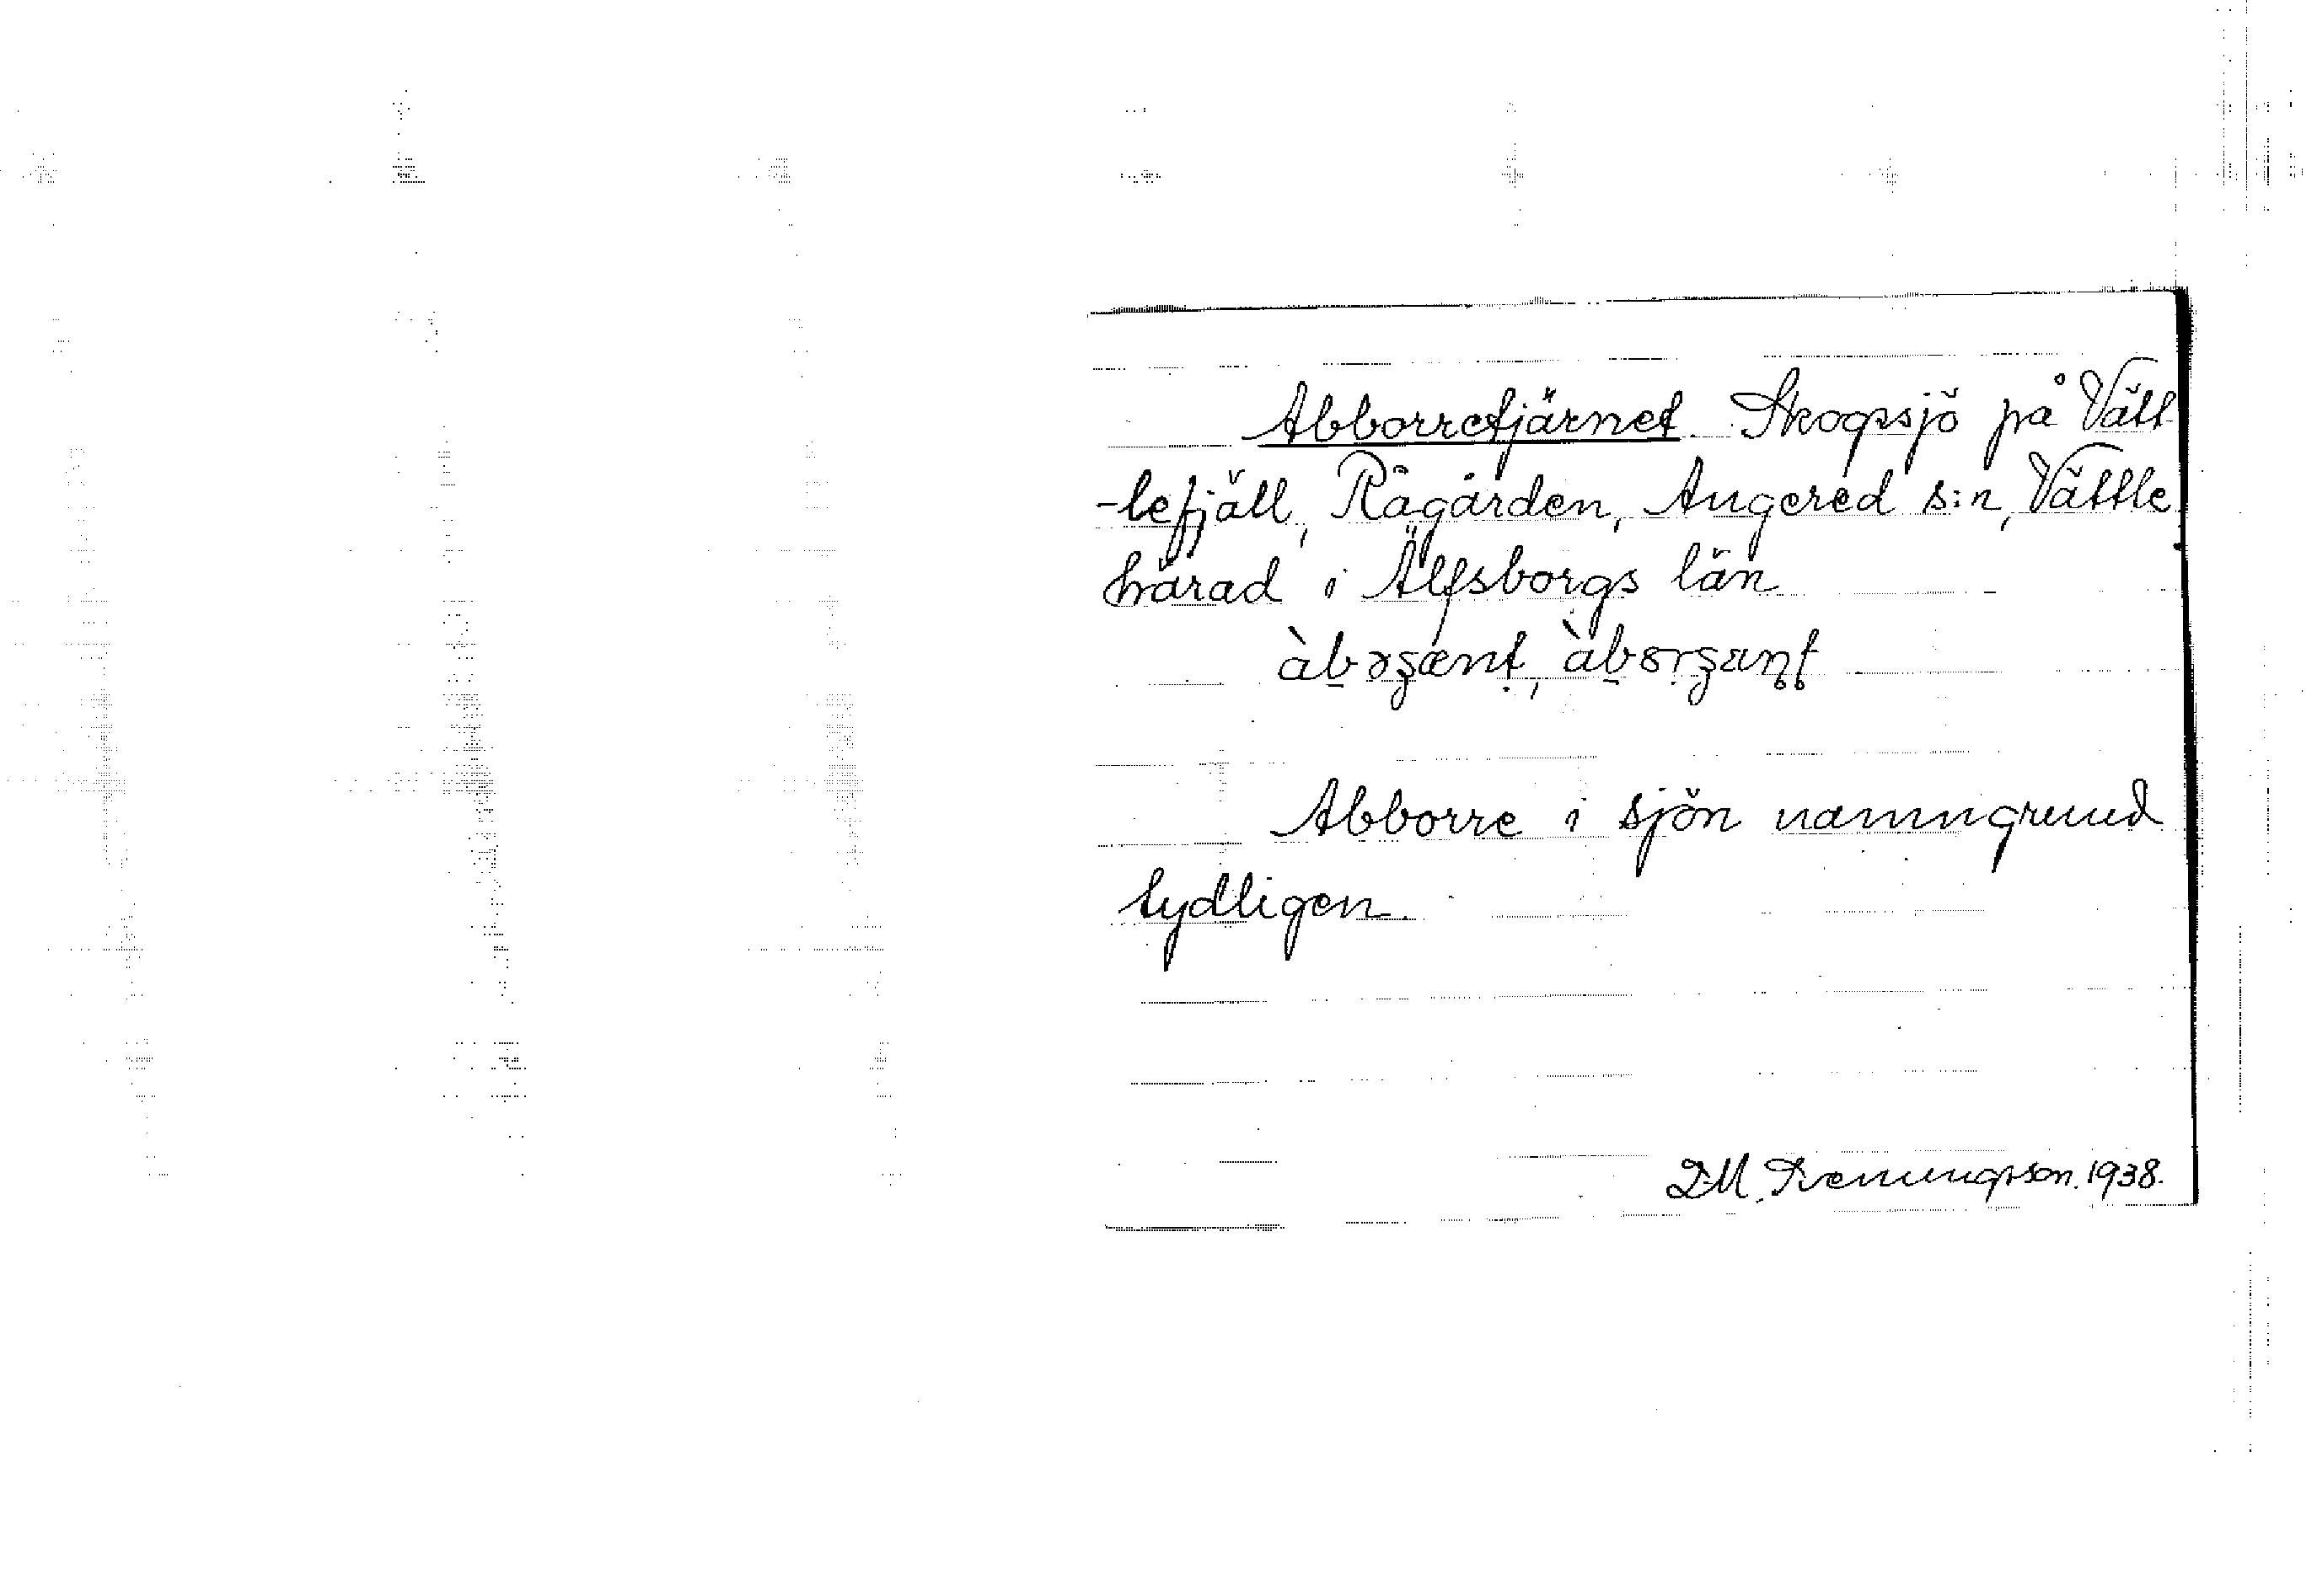 Abborretjärnet. Skogssjö på Vätt-
-lefjäll, Rågården, Angered s:n, Vättle
härad i Älfsborgs län
Abborre i sjön namngrund
tydligen.
D.M. 1938.